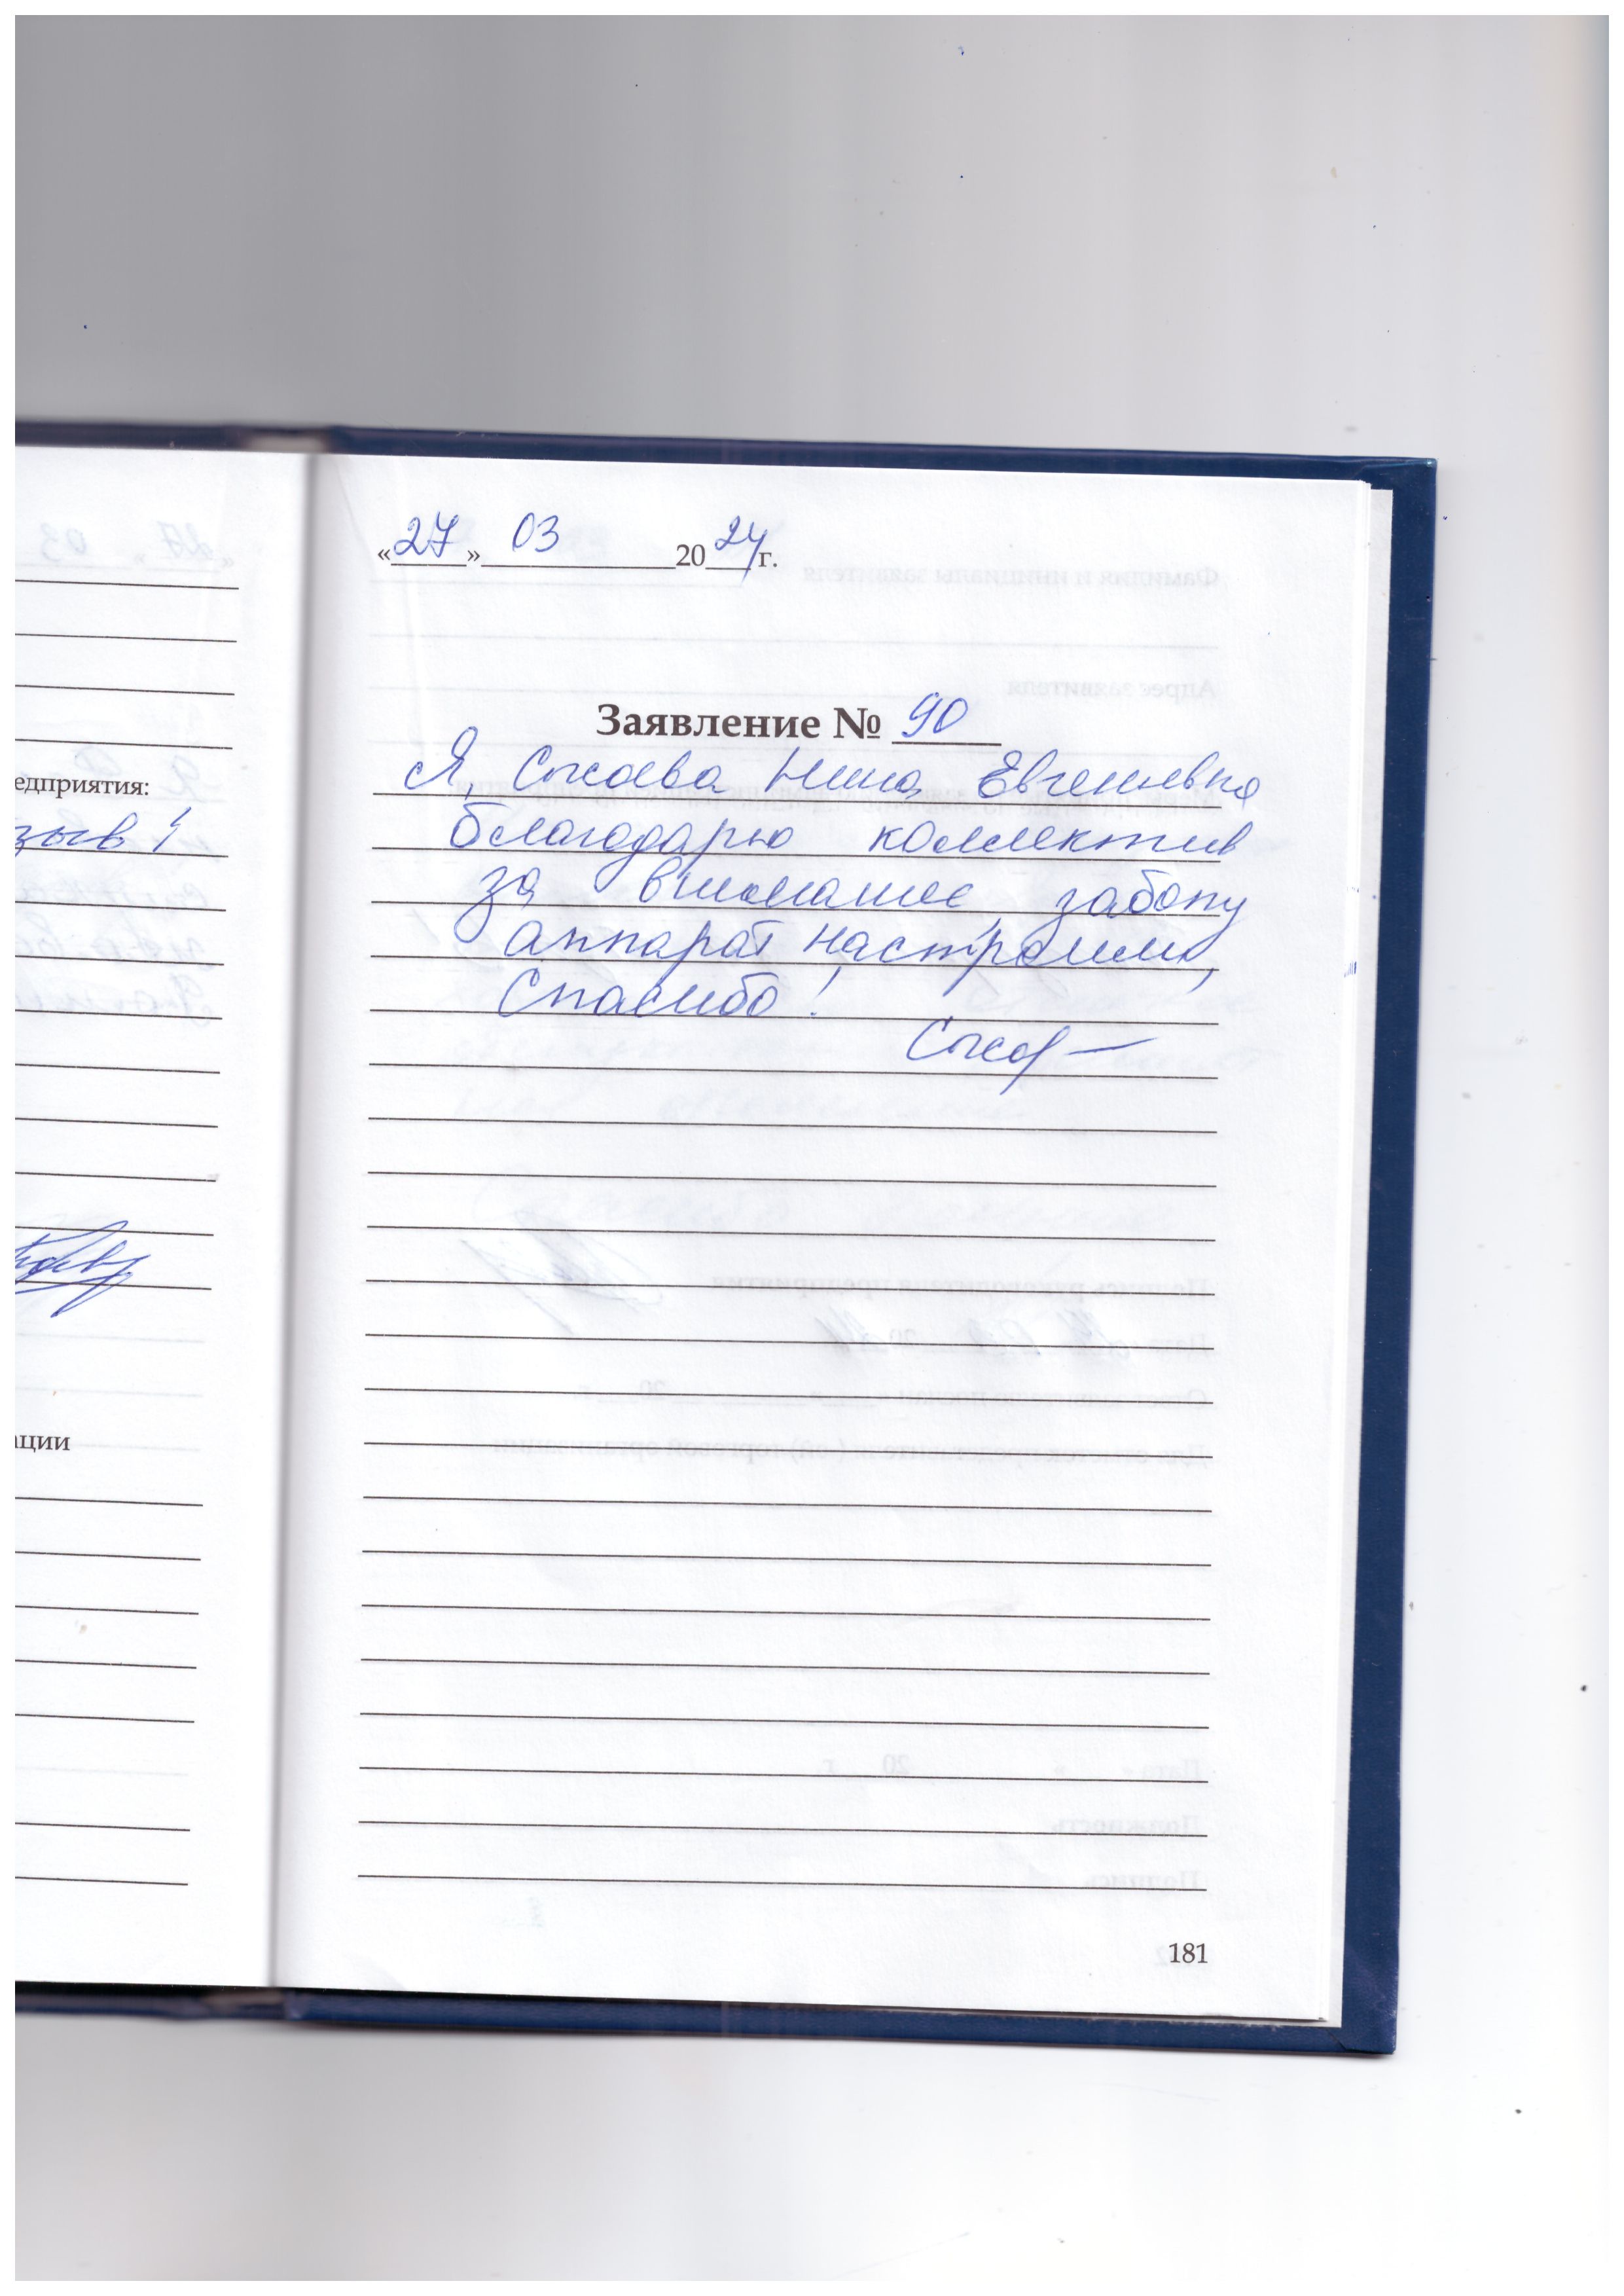 «27» 03 2024 г.
Заявление № 90
Я, Нина Евгеньевна
благодарю коллектив
за внимание заботу
аппарат настроили,
Спасибо!
едприятия:
зыв!
ации
181